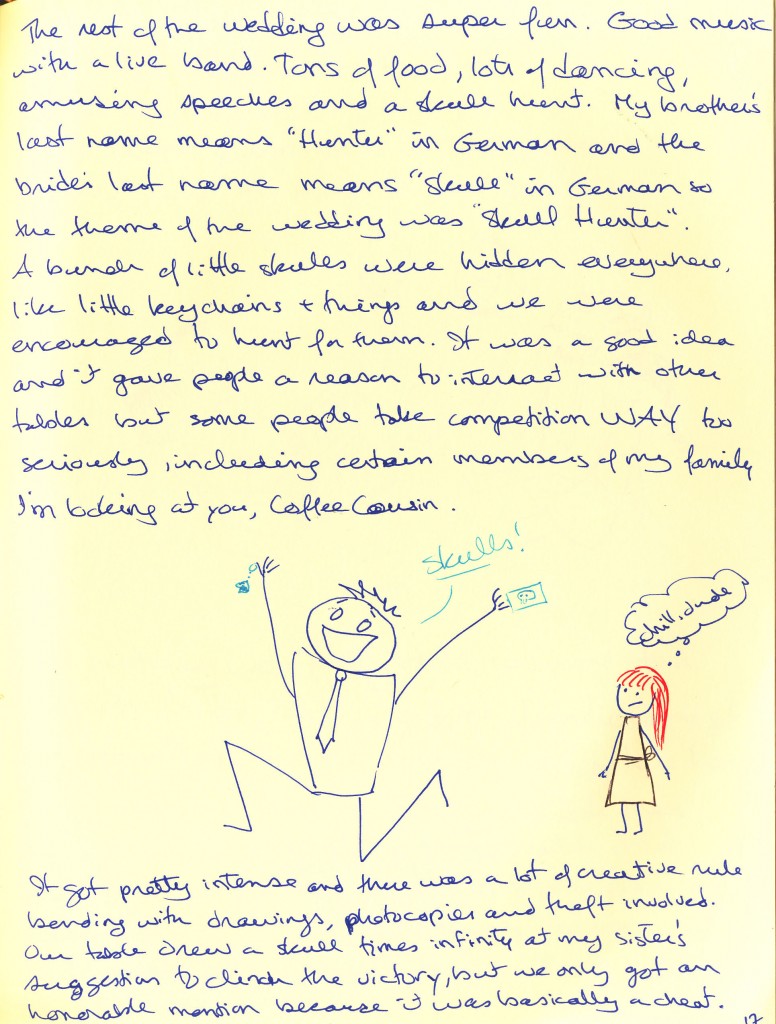 The rest of the wedding was super fun. Good music
with a live band. Tons of food, lots of dancing,
amusing speeches and a skull hunt. My brother's
last name means "Hunter" in German and the
bride's last name means "Skull" in German so
the theme of the wedding was "Skull Hunter".
A bunch of little skulls were hidden everywhere,
like little keychains + things and we were
encouraged to hunt for them. It was a good idea
and it gave people a reason to interact with other
tables but some people take competition WAY too
seriously, including certain members of my family
I'm looking at you, Coffee Cousin.
Skulls!
chill, dude
It got pretty intense and there was a lot of creative rule
bending with drawings, photocopies and theft involved.
Our table drew a skull times infinity at my sister's
suggestion to clinch the victory, but we only got an
honorable mention because it was basically a cheat.
17